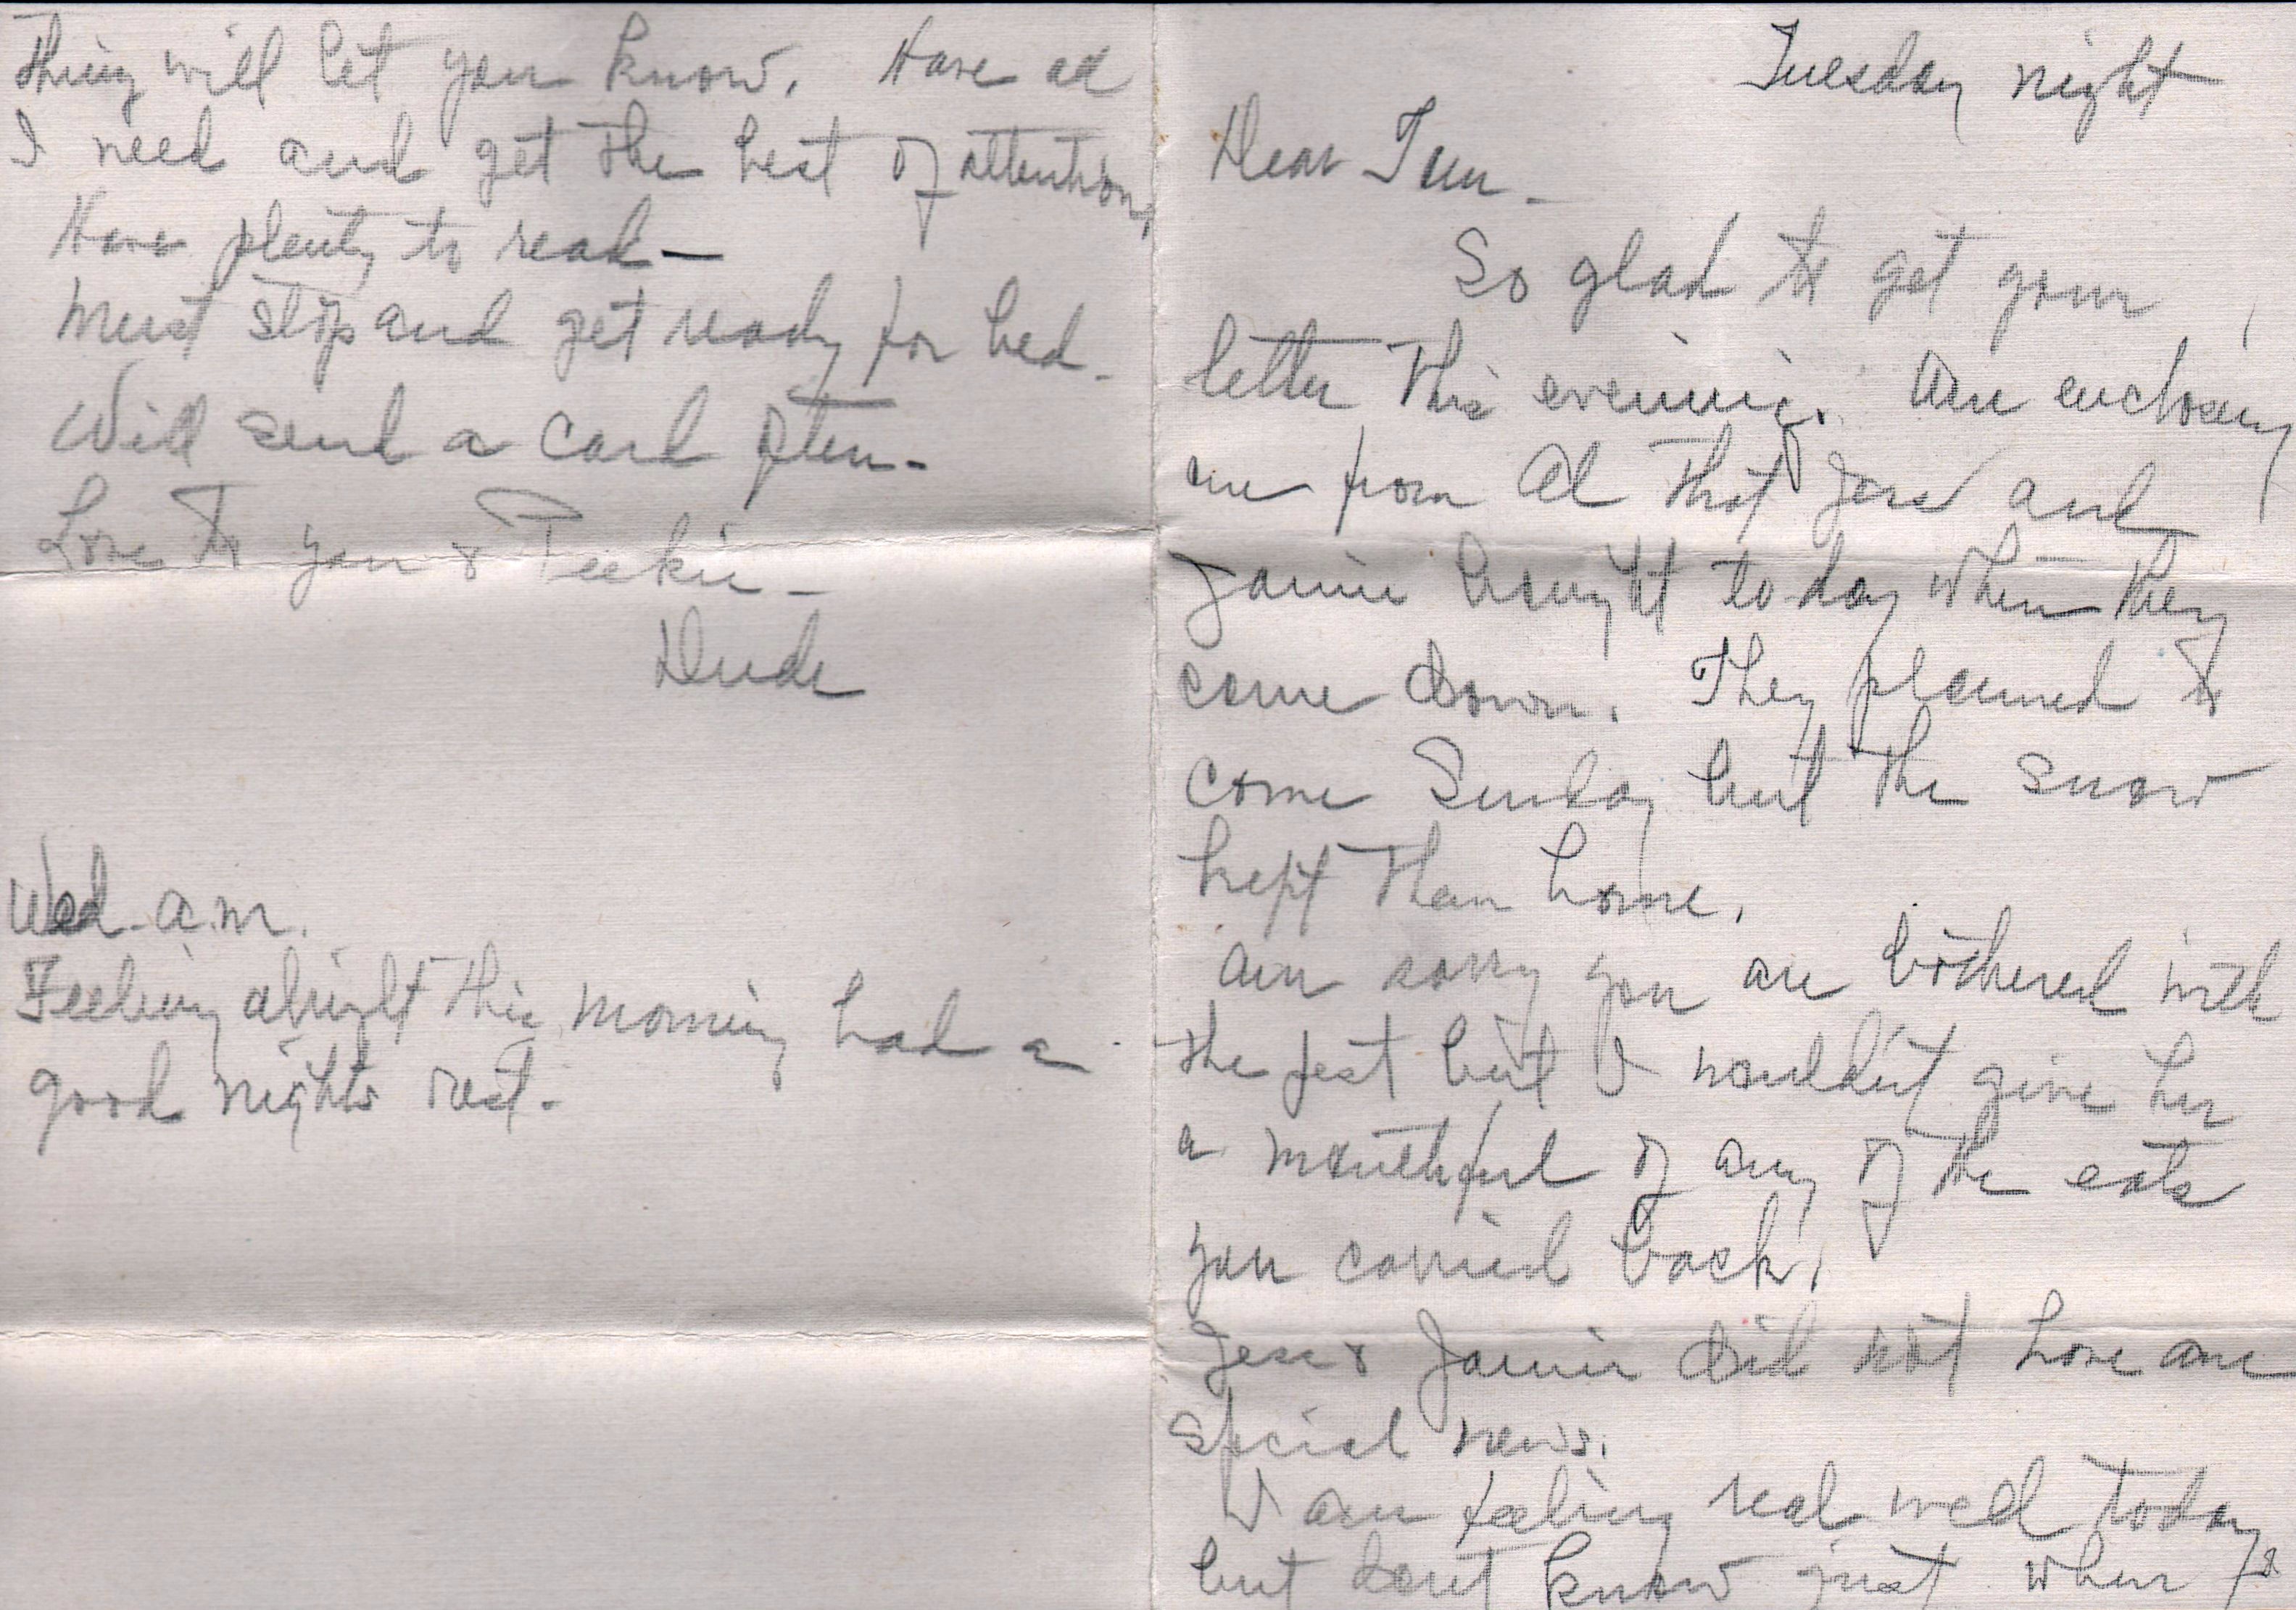 Tuesday night
Dear Tun -
So glad to get your
letter this evening. Am enclosing
one from Al that Jess and
Jamie brought to-day when they
come down. They planned to
come Sunday but the snow
kept them home.
Am sorry you are bothered with
the pest but I wouldn't give her
a mouthful of any of the eats
you carried back.
Jess & Jamie did not have any
special news.
I am feeling real well today
but dont know just when
thing will let you know. Have all
I need and get the best of attention,
Have plenty to read —
Must stop and get ready for bed.
Will send a card often -
Love to you & Teekie -
Dude
Wed - a.m.
Feeling alright this morning had a
good nights rest.